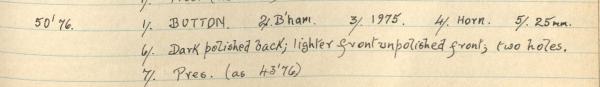 50'76. 1/. BUTTON. 2/. B'ham. 3/. 1975. 4/. Horn. 5/. 25mm.
6/. Dark polished back; lighter front unpolished front; two holes.
7/. Pres. (as 43'76)